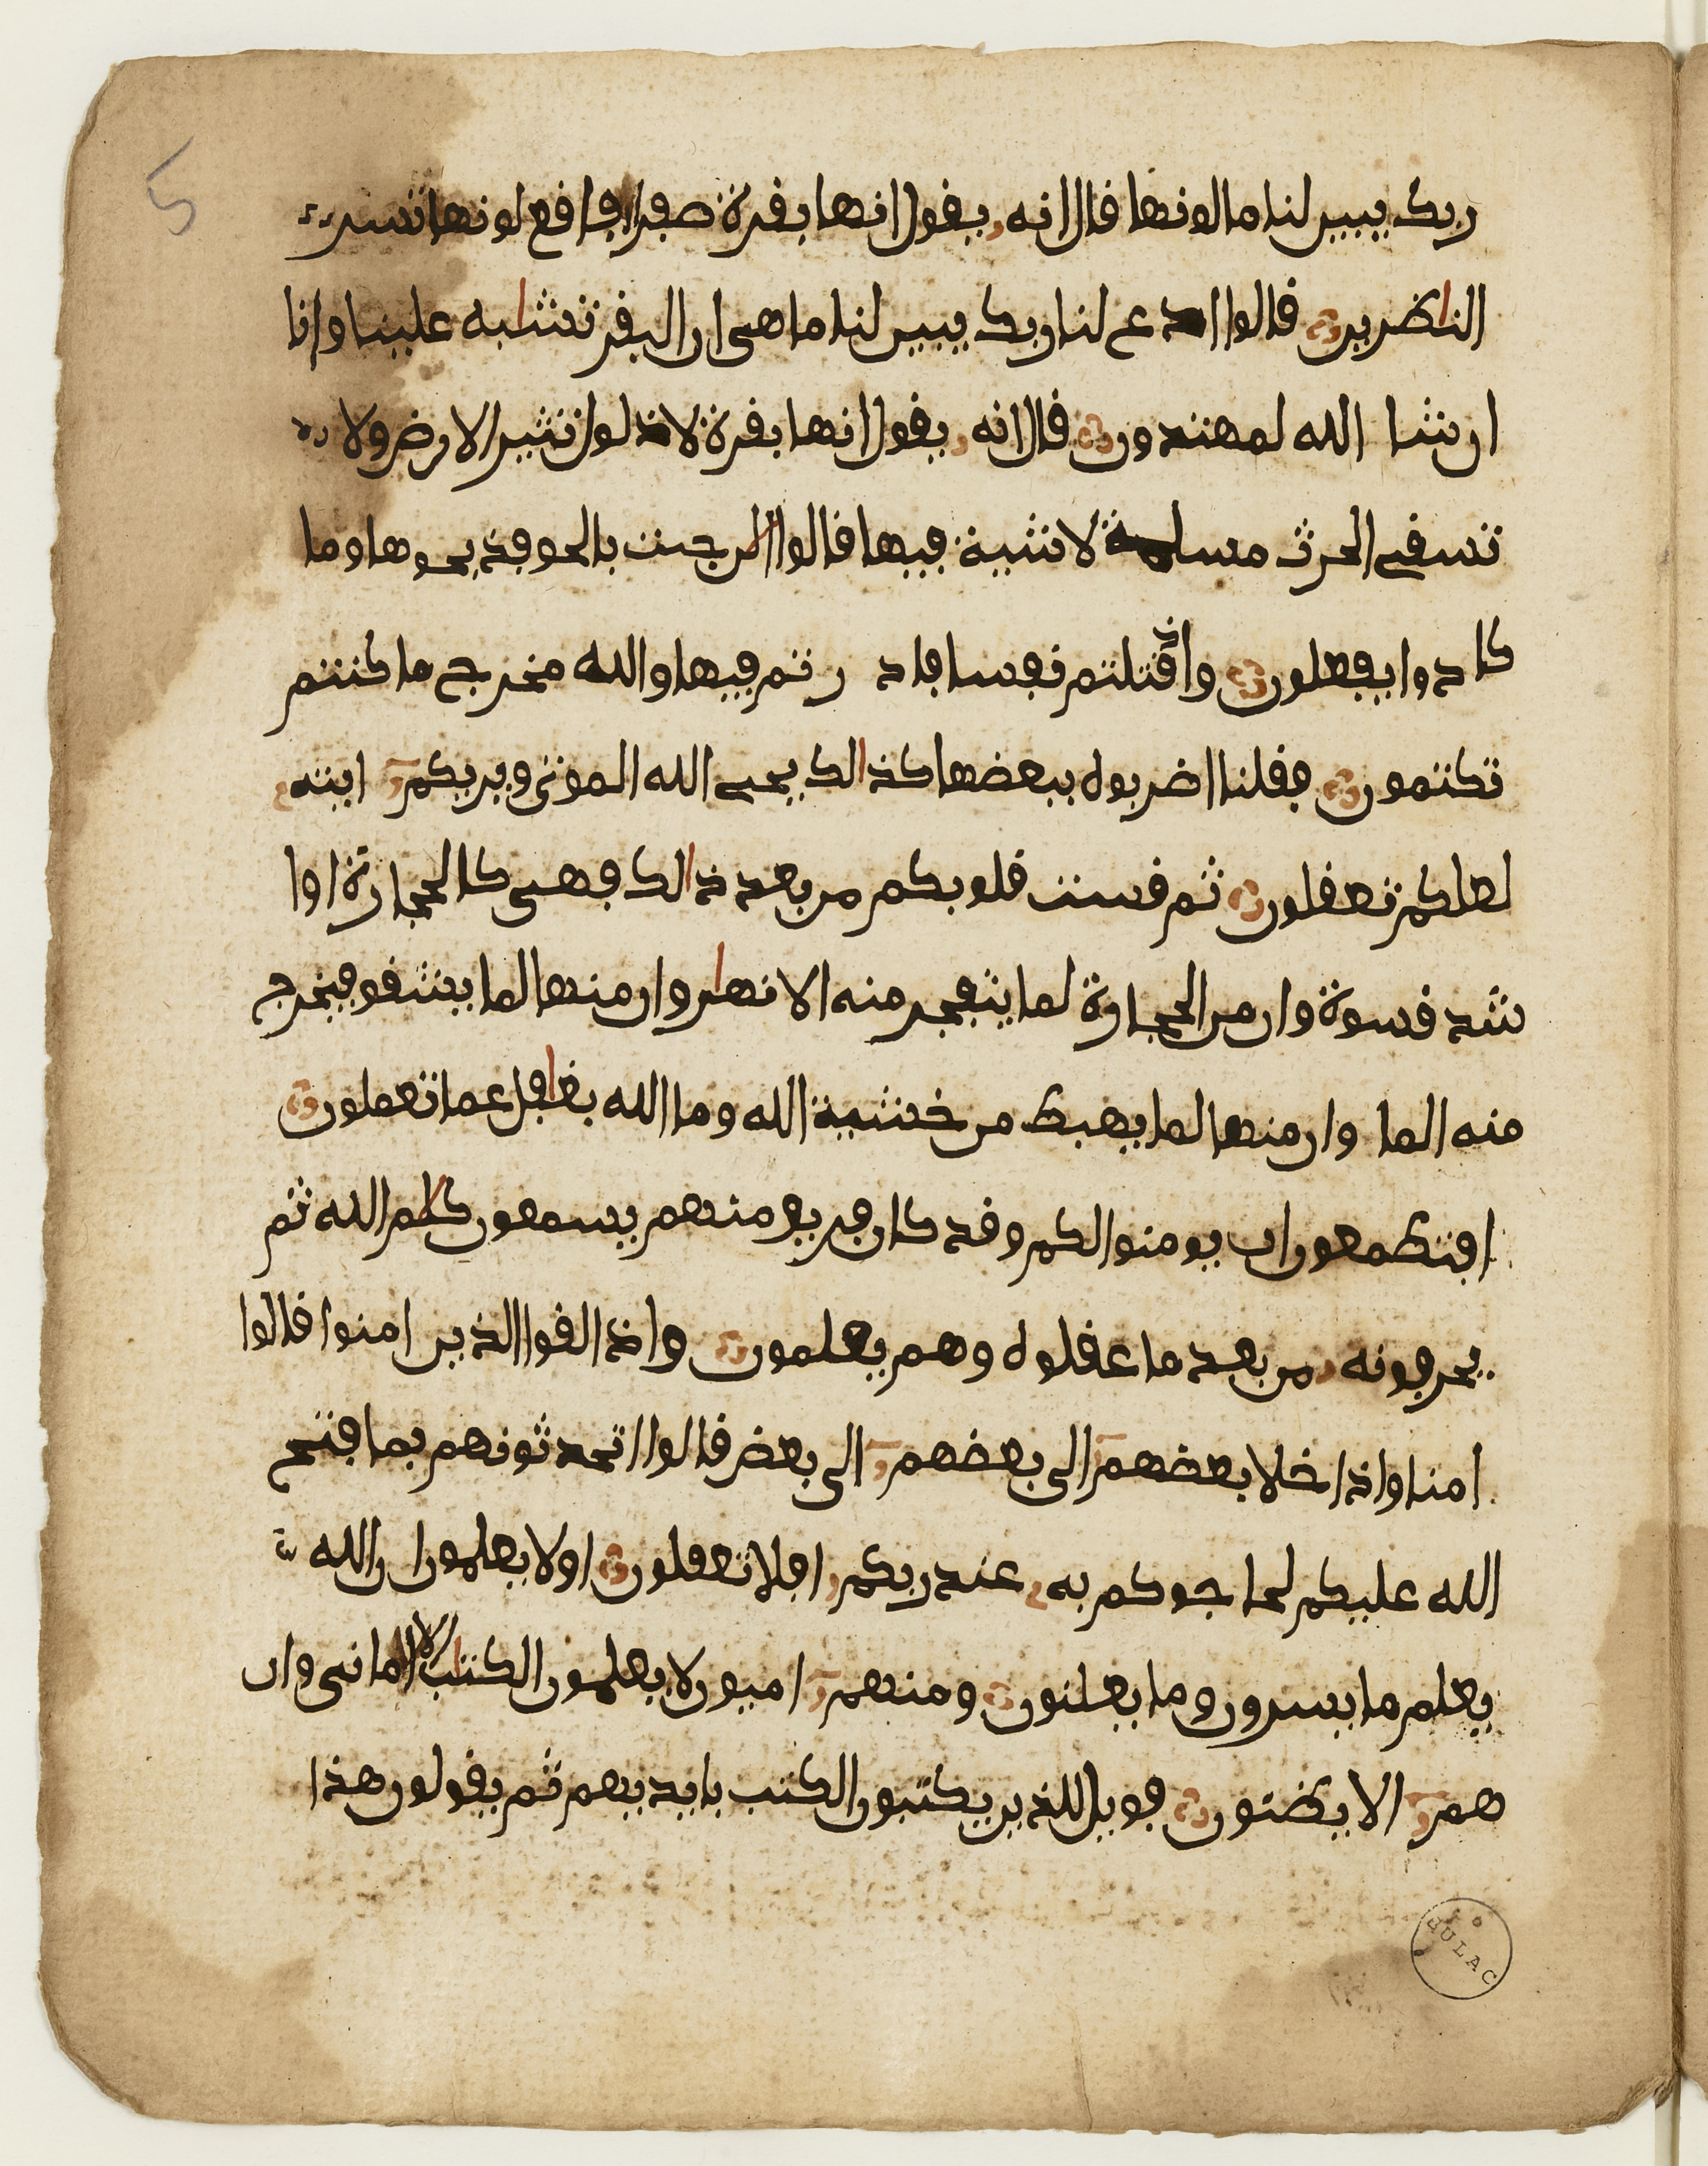 5
ربك يبين لنا ما لونها قال انه يقول انها بقرة صفرا فاقع لونها تسر
النظرين قالوا ادع لنا ربك يبين لنا ما هى ان البقر تشبه علينا وانا
ان شا الله لمهتدون قال انه يقول انها بقرة لا ذلول تثير الارض ولا
تسقى الحرث مسلمة لا شية فيها قالوا الن جئت بالحق فذبحوها وما
كادوا يفعلون واذ قتلتم نفسا فاد رتم فيها والله مخرج ما كنتم
تكتمون فقلنا اضربوه ببعضها كذالك يحى الله الموتى ويريكم ايته
لعلكم تعقلون ثم قست قلوبكم من بعد ذالك فهى كالحجارة او ا
شد قسوة وان من الحجارة لما يتفجر منه الانهر وان منها لما يشقق فيخرج
منه الما وان منها لما يهبط من خشية الله وما الله بغفل عما تعملون
افتطمعون ان يومنوا لكم وقد كان فريق منهم يسمعون كلم الله ثم
يحرفونه من بعد ما عقلوه وهم يعلمون واذا لقوا الذين امنوا قالوا
امنا واذا خلا بعضهم الى بعضهم الى بعض قالوا اتحدثونهم بما فتح
الله عليكم لحاجوكم به عند ربكم افلا تعقلون اولا يعلمون ان الله
يعلم ما يسرون وما يعلنون ومنهم اميون لا يعلمون الكتب الا امانى وان
هم الا يظنون فويل للذين يكتبون الكتب بايديهم ثم يقولون هذا
BULAC